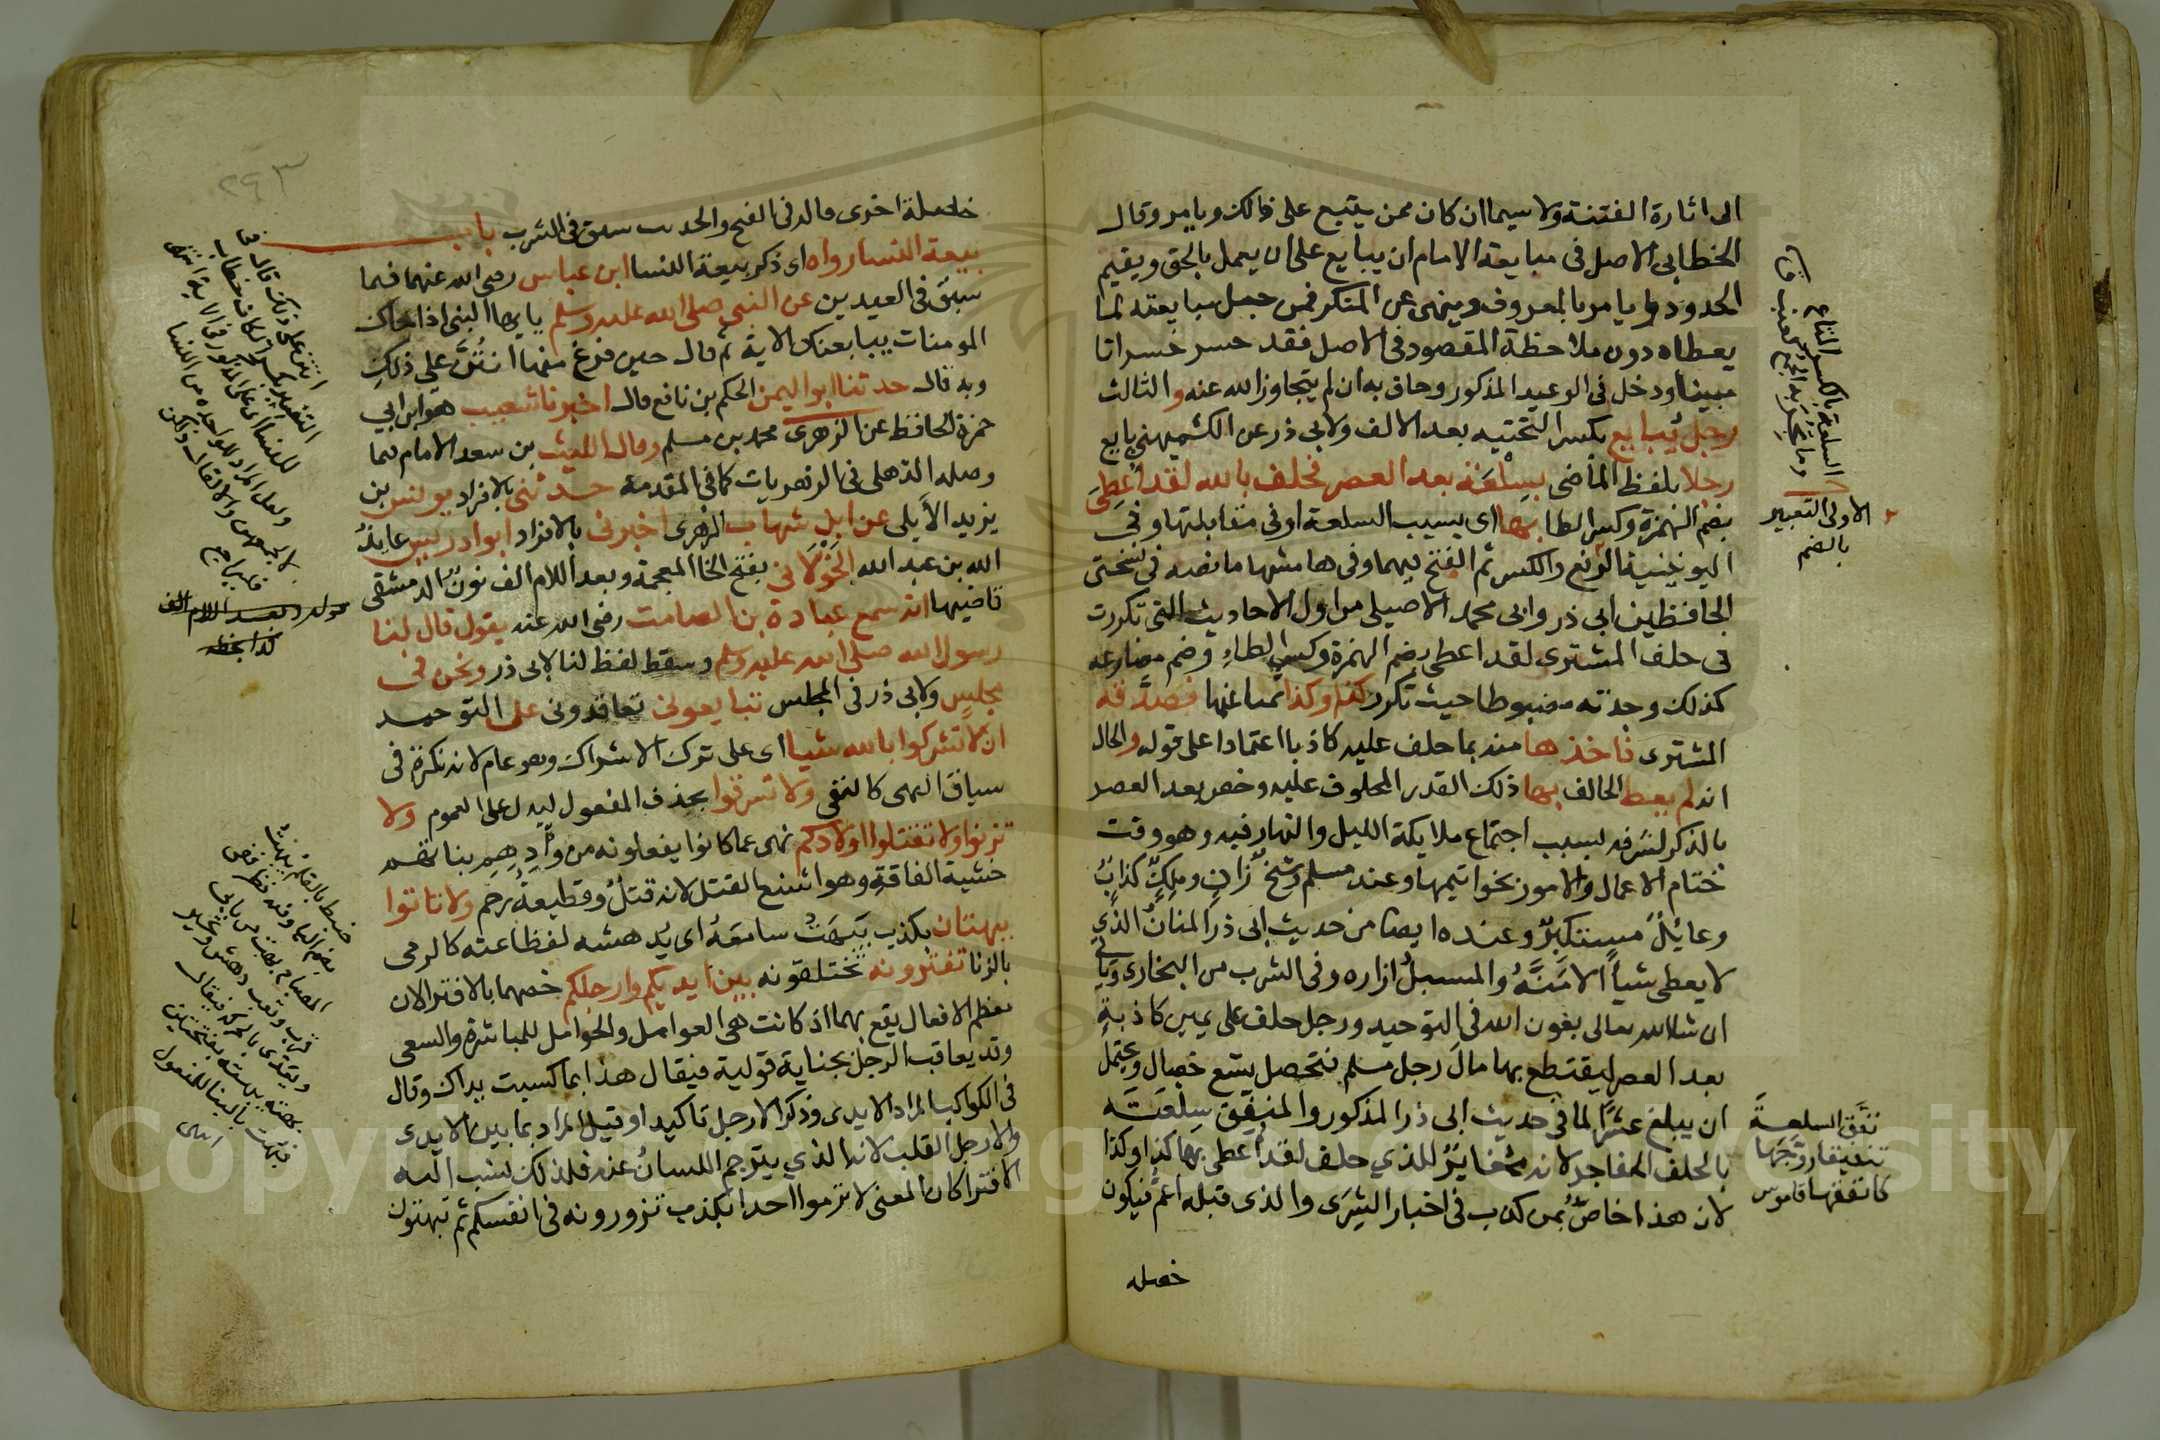 الى اثارة الفتنة ولا سيما ان كان ممن يتبع على ذلك ويامر وقال
الخطابى الاصل فى مبايعة الامام ان يبايع على ان يعمل بالحق ويقيم
الحدود ويامر بالمعروف وينهى عن المنكر فمن جعل مبايعته لما
يعطاه دون ملاحظة المقصود فى الاصل فقد خسر خسرانا
مبينا ودخل فى الوعيد المذكور وحاق به ان لم يتجاوز الله عنه والثالث
رجل يُبايع بكسر التحتيه بعد الالف ولابى ذر عن الكشميهنى بايع
رجلا بلفظ الماضى بسِلْعَة بعد العصر فحلف بالله لقد اُعطِىَ
بضم الهمزة وكسر الطا بها اى بسبب السلعة او فى مقابلتها وفى
اليونينية الرفع والكسر ثم الفتح فيهما وفى هامشها ما نصه فى نسختى
الحافظين ابى ذر وابى محمد الاصيلى من اول الاحاديث التى تكررت
فى حلف المشترى لقد اعطى بضم الهمزة وكسر الطاء وضم مضارعه
كذلك وجدته مضبوطا حيث تكرر كذا وكذا ثمنا عنها فصدَّقه
المشترى فاخذها منه بما حلف عليه كاذبا اعتمادا على قوله والحال
انه لم يعط الحالف بها ذلك القدر المحلوف عليه وخص بعد العصر
بالذكر لشرفه لسبب اجتماع ملايكة الليل والنهار فيه وهو وقت
ختام الاعمال والامور بخواتيمها وعند مسلم وشيخٌ زانٍ وملِكٌ كذابٌ
وعايِلٌ مستكبرٌ وعنده ايضا من حديث ابى ذر المنانُ الذى
لا يعطى شيأ الا مَنَّهُ والمسبلُ ازاره وفى الشرب من البخارى وياتى
ان شا الله تعالى بعون الله فى التوحيد ورجل حلف على يمين كاذبةٍ
بعد العصر ليقتطع بها مال رجل مسلم فتحصل تسع خصال ويحتمل
ان يبلغ عشرًا لما فى حديث ابى ذر المذكور والمنفِّق سِلْعَتَه
بالحلف الفاجر لانه مغايرٌ للذي حلف لقد اُعطى بها كذا وكذا
لان هذا خاصٌّ بمن كذب فى اخبار الشِرَى والذى قبله اعمُّ فيكون
خصله
السلعة بالكسر المتاع
وما تجر به
الاولى التعبير
بالضم
نفَّق السلعة
تنفيقا روَّجَها
كانفقها قاموس
٢٩٣
خصلة اخرى قاله فى الفتح والحديث سبق فى الشرب باب
بيعة النسا رواه اى ذكر بيعة النسا ابن عباس رضى الله عنهما فيما
سبق فى العيدين عن النبى صلى الله عليه وسلم يا ايها النبى اذا جاك
المومنات يبايعنك الاية ثم قال حين فرغ منها انتُنَّ على ذلكِ
وبه قال حدثنا ابو اليمن الحكم بن نافع قال اخبرنا شعيب هو ابن ابى
حمزة الحافظ عن الزهرى محمد بن مسلم وقال الليث بن سعد الامام مما
وصله الذهلى فى الزهريات كما فى المقدمة حدثنى بالافراد يونس بن
يزيد الأيلى عن ابن شهاب الزهرى اخبرنى بالافراد ابو ادريس عايذُ
الله بن عبد الله الخَوْلَانى بفتح الخا المعجمة وبعد اللام الف نونٌ الدمشقى
قاضيها انه سمع عبادة بن الصامت رضى الله عنه يقول قال لنا
رسول الله صلى الله عليه وسلم وسقط لفظ لنا لابى ذر ونحن فى
مجلسٍ ولابى ذر فى المجلس تبايعونى تعاقدونى على التوحيد
ان لا تشركوا بالله شيا اى على ترك الاشراك وهو عام لانه نكرة فى
سياق النهى كالنفى ولا تسرقوا بحذف المفعول ليدل على العموم ولا
تزنوا ولا تقتلوا اولادكم نهى عما كانوا يفعلونه من وأدِهِم بناتهم
خشية الفاقةِ وهو اشنع القتل لانه قتلٌ وقطيعةُ رحم ولا تاتوا
ببهتان بكذب يَبهَتُ سامعَهُ اى يُدهشه لفظاعته كالرمى
بالزنا تفترونه تختلقونه بين ايديكم وارجلكم خصهما بالافترا لان
معظم الافعال يقع بهما اذ كانت هى العوامل والحوامل للمباشرة والسعى
وقد يعاقب الرجل بجناية قولية فيقال هذا بما كسبت يداك وقال
فى الكواكب المراد الايدى وذكر الارجل تاكيد او قيل المراد بما بين الايدى
والارجل القلب لانه الذي يترجم اللسانُ عنه فلذلك نسب اليه
الافترا كان المعنى لا ترموا احدا بكذب تزورونه فى انفسكم ثم تبهتون